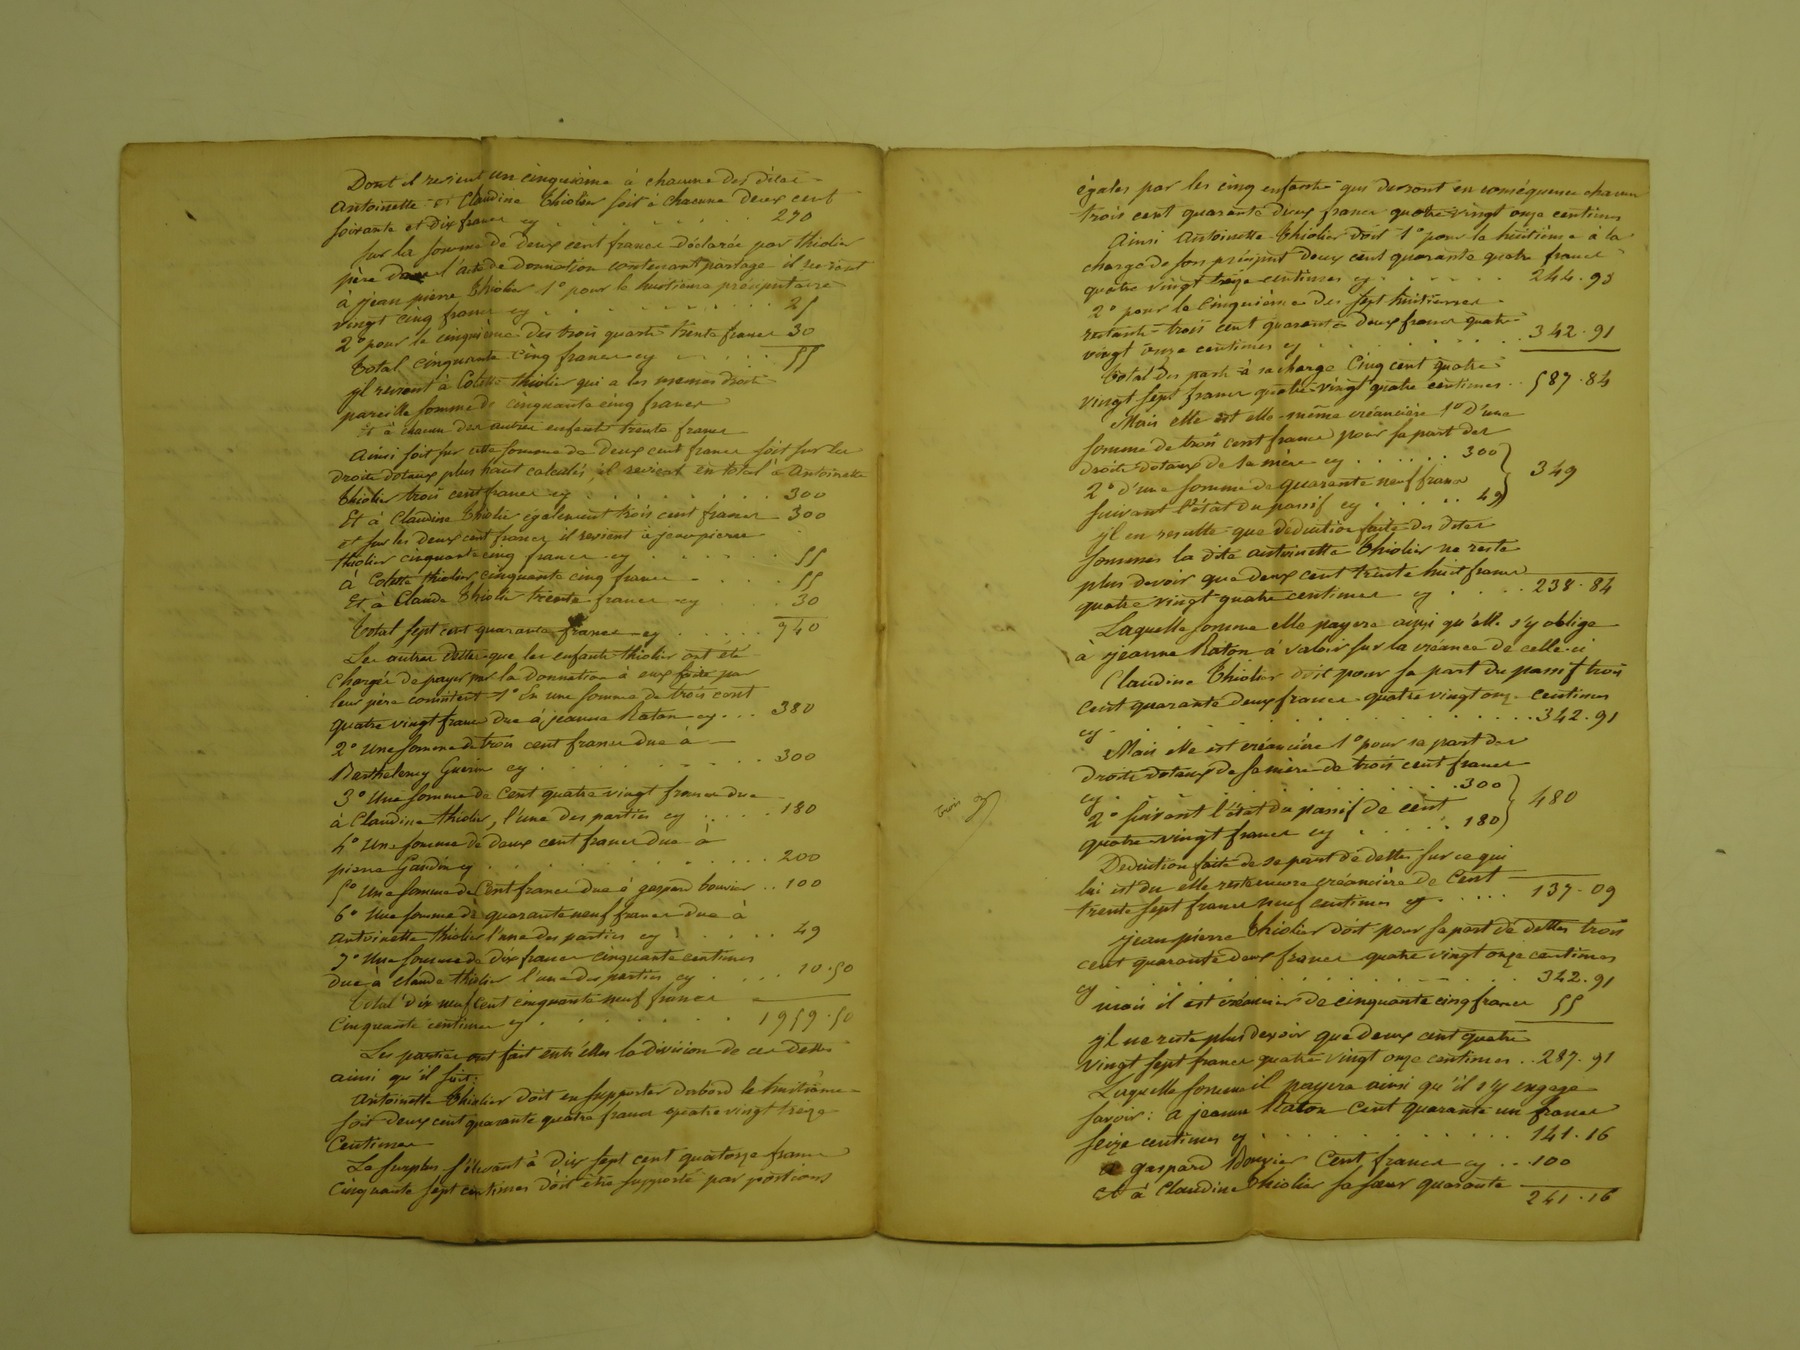 Dont il revient un cinquieme à chacune des dites
Antoinette et Claudine Thiolier soit à chacune deux cent
soixante et dix francs cy . . . . . . . 270
Sur la somme de deux cent francs déclarée par thiolier
père dans l'acte de donnation contenant partage il revient
à jean pierre Thiolier 1° pour le huitieme préciputaire
vingt cinq francs cy . . . . . . . . 25
2° pour le cinquième des trois quarts trente francs 30
Total cinquante cinq francs cy . . . . 55
yl revient à Colette thiolier qui a les memes droits
pareille somme de cinquante cinq francs
Et à chacun des autres enfants trente francs
Ainsi soit sur cette somme de deux cent francs soit sur les
droits dotaux plus haut calculés, il revient en total à Antoinette
Thiolier trois cent francs cy . . . . . . . . 300
Et à Claudine Thiolier également trois cent francs 300
et sur les deux cent francs il revient à jean pierre
thiolier cinquante cinq francs cy . . . . . . 55
à Colette thiolier cinquante cinq francs . . . . 55
Et à Claude Thiolier trente francs cy . . 30
Total sept cent quarante francs cy . . . . . 740
Les autres dettes que les enfants thiolier ont été
chargés de payer par la donnation à eux faite par
leur père consistent 1° En une somme de trois cent
quatre vingt francs due à jeanne Raton cy . . . 380
2° Une somme de trois cent francs due à
Barthelemy Guerin cy . . . . . . . . . 300
3° Une somme de Cent quatre vingt francs due
à Claudine thiolier, l'une des parties cy . . . . . 180
4° Une somme de deux cent francs due à
pierre Gaudin cy . . . . . . . . . . . . 200
5° Une somme de Cent francs due à gaspard bouvier . . 100
6° Une somme de quarante neuf francs due à
Antoinette thiolier l'une des parties cy . . . . . 49
7° Une somme de dix francs cinquante centimes
due à Claude thiolier l'une des parties cy . . . . 10.50
Total dix neuf cent cinquante neuf francs
Cinquante centimes cy . . . . . . . . 1959.50
Les parties ont fait entr'elles la division de ces dettes
ainsi qu'il suit:
Antoinette Thiolier doit en supporter d'abord le huitième
soit deux cent quarante quatre francs quatre vingt treize
Centimes
Le surplus s'élevant à dix sept cent quatorze francs
Cinquante sept centimes doit être supporté par portions
égales par les cinq enfants qui devront en conséquence chacun
trois cent quarante deux francs quatre-vingt onze centimes
Ainsi Antoinette Thiolier doit 1° pour le huitième à la
charge de son préciput deux cent quarante quatre francs
quatre vingt treize centimes cy . . . . . . 244.93
2° pour le Cinquième des sept huitiemes
restants trois cent quarante deux francs quatre
vingt onze centimes cy . . . . . . . . . 342.91
Total des parts à sa charge Cinq cent quatre
vingt sept francs quatre-vingt quatre centimes . . 587.84
Mais elle est elle-même créancière 1° d'une
somme de trois cent francs pour sa part des
droits dotaux de sa mère cy . . . . . . 300
2° d'une somme de quarante neuf francs 349
suivant l'état du passif cy . . . . . . 49
yl en resulte que deduction faite des dites
sommes la dite antoinette Thiolier ne reste
plus devoir que deux cent trente huit francs
quatre vingt quatre centimes cy . . . . . 238.84
Laquelle somme elle payera ainsi qu'elle s'y oblige
à jeanne Raton à valoir sur la créance de celle-ci
Claudine Thiolier doit pour sa part du passif trois
cent quarante deux francs quatre vingt onze centimes
cy . . . . . . . . . . . . . . . 342.91
Mais elle est créancière 1° pour sa part des
droits dotaux de sa mère de trois cent francs
cy . . . . . . . . . . . . . . 300
2° suivant l'état du passif de cent 480
quatre-vingt francs cy . . . . . . 180
Deduction faite de sa part de dettes sur ce qui
lui est du elle reste encore créancière de Cent
trente sept francs neuf centimes cy . . . . . 137.09
trois
jean pierre Thiolier doit pour sa part de dettes trois
cent quarante deux francs quatre vingt onze centimes
cy . . . . . . . . . . . . . . . 342.91
mais il est créancier de cinquante cinq francs 55
yl ne reste plus devoir que deux cent quatre
vingt sept francs quatre vingt onze centimes . . 287.91
Laquelle somme il payera ainsi qu'il s'y engage
savoir: a jeanne Raton Cent quarante un francs
seize centimes cy . . . . . . . . . . . 141.16
a gaspard Bouvier Cent francs cy . . . 100
et à Claudine Thiolier sa sœur quarante 241.16